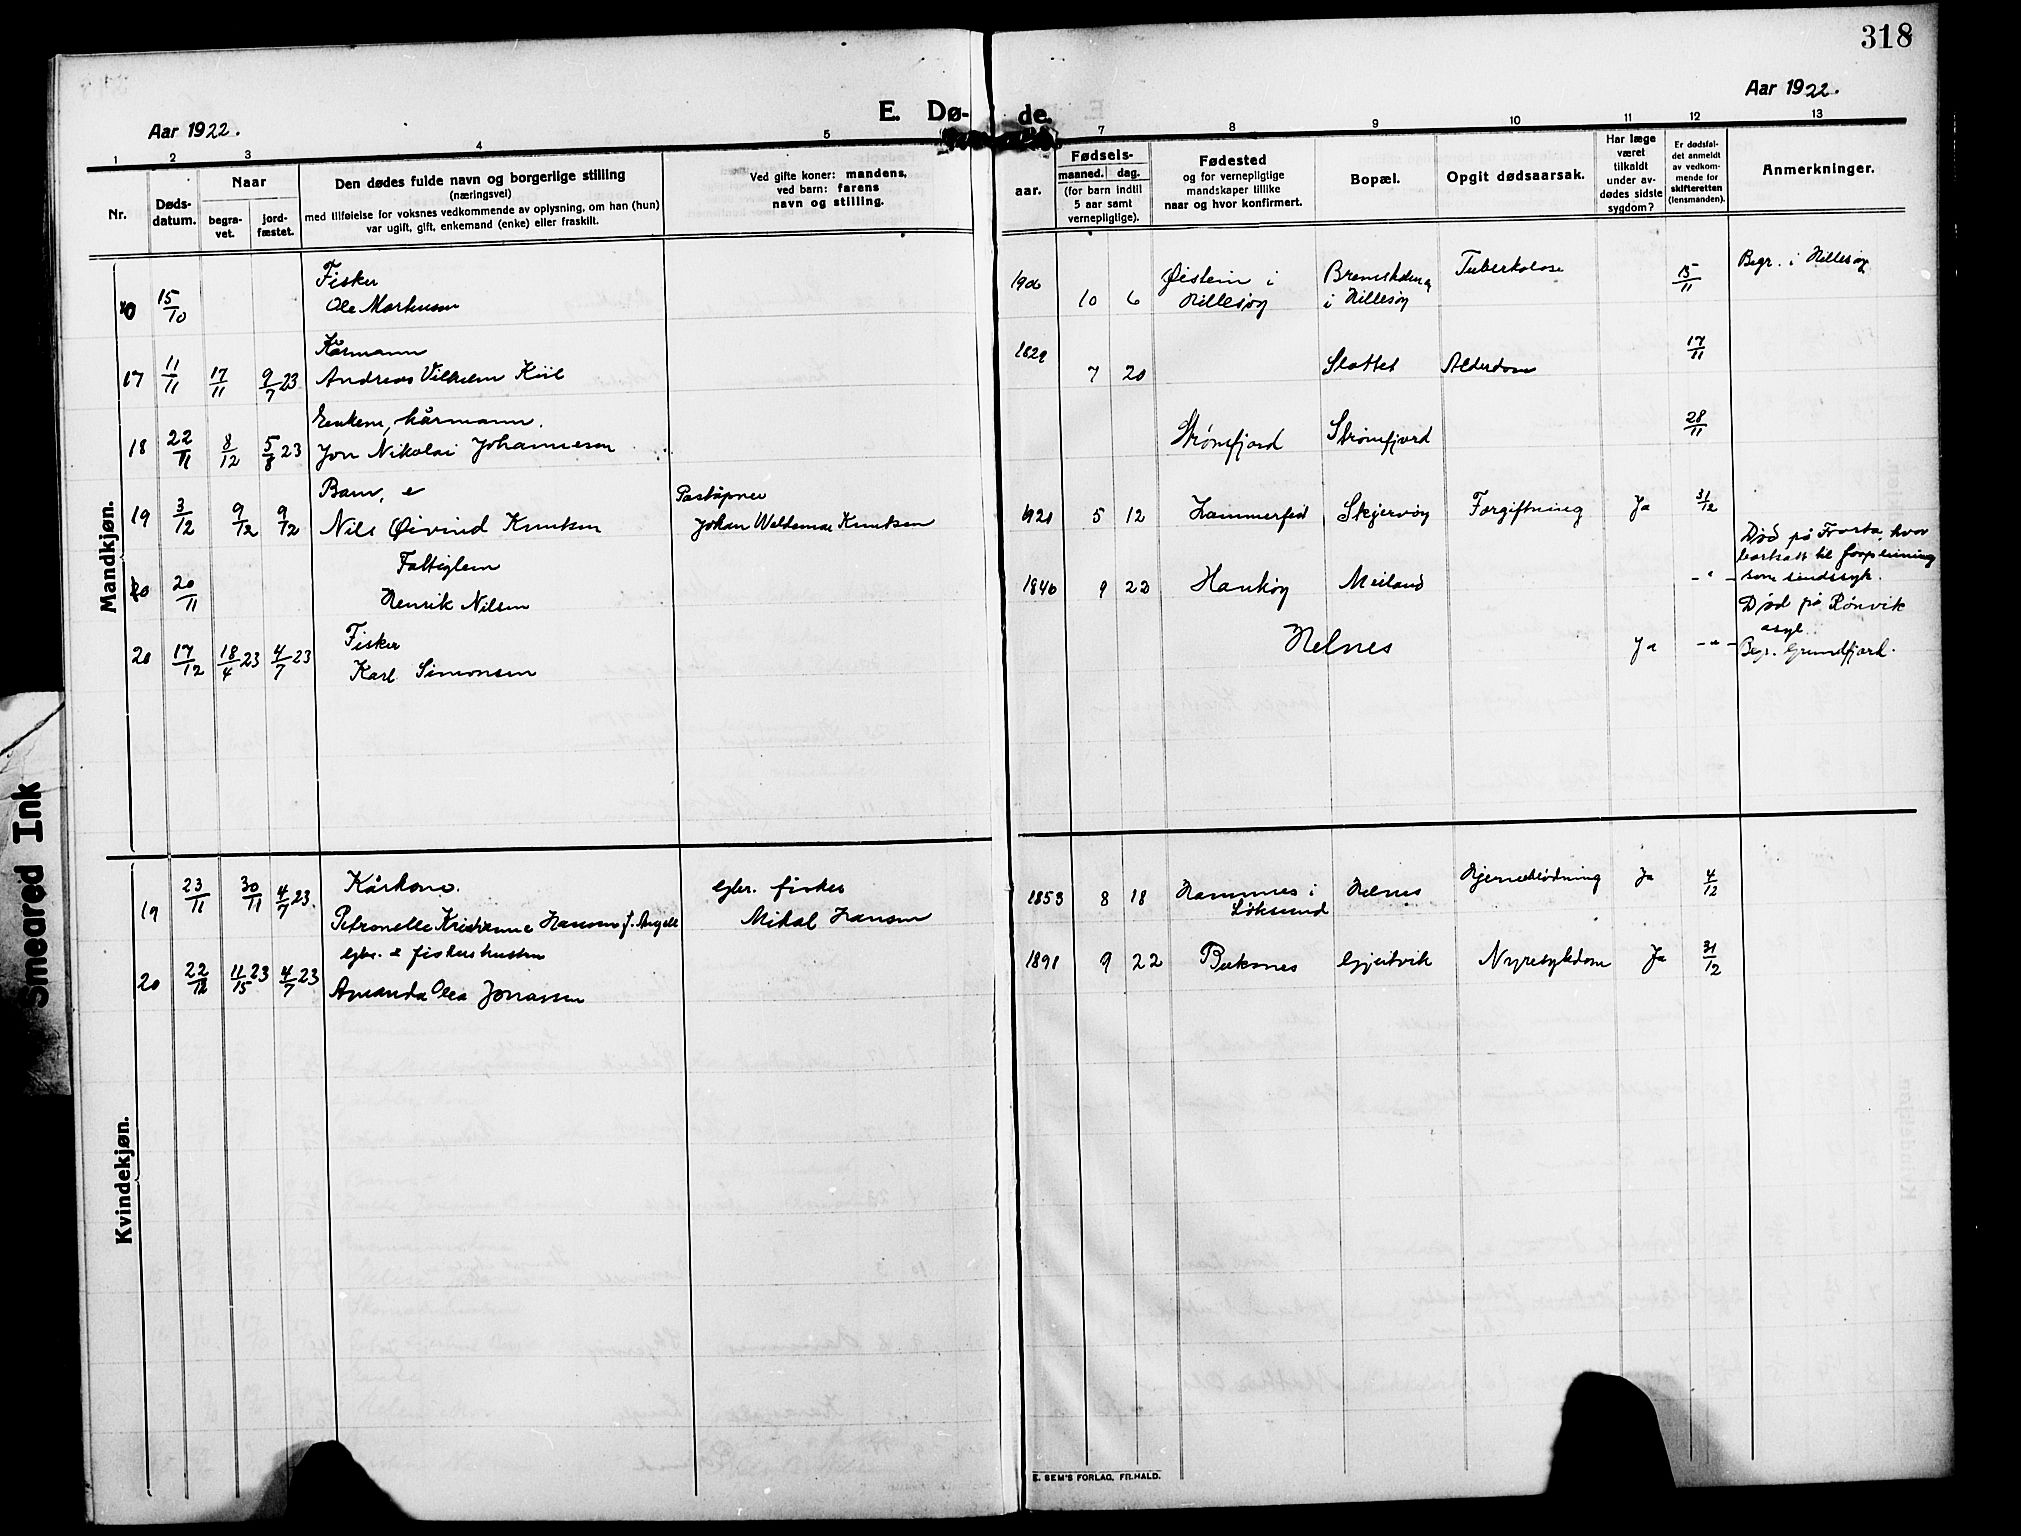 318
Aar 1922.
E. Dø-
de.
Aar 1922.
1 2 3 4 5 7 8 9 10 11 12 13
Nr.
Døds-
datum.
Naar
begra-
vet.
jord-
fæstet.
Den dødes fulde navn og borgerlige stilling
(næringsvei)
med tilføielse for voksnes vedkommende av oplysning, om han (hun)
var ugift, gift, enkemand (enke) eller fraskilt.
Ved gifte koner: mandens,
ved barn: farens
navn og stilling.
aar.
Fødsels-
maaned. dag.
(for barn indtil
5 aar samt
vernepligtige).
Fødested
og for vernepligtige
mandskaper tillike
naar og hvor konfirmert.
Bopæl.
Opgit dødsaarsak.
Har læge
været
tilkaldt
under av-
dødes sidste
sygdom?
Er dødsfal-
det anmeldt
av vedkom-
mende for
skifteretten
(lensmanden).
Anmerkninger.
Mandkjøn.
Fisker
0 15/10 Ole Markussen 10 6 Øistein i Hillesøy Bremsholmen i Hillesøy Tuberkolose 15/11 Begr. i Hillesøy
Kårmann
17 11/11 17/11 9/7 23 Andreas Vilhelm Kiil 1829 7 20 Slottet Alderdom 17/11
Enkem, kårmann.
18 22/11 8/12 5/8 23 Jon Nikolai Johannesen Strømfjord Strømfjord 28/11
Barn, e Poståpner
19 3/12 9/12 9/12 Nils Øivind Knutsen Johan Waldemar Knutsen 1921 5 12 Hammerfest Skjervøy Forgiftning Ja 31/12
Fattiglem
0 20/11 Henrik Nilsen 1840 9 22 Haukøy Meiland -"-
Død på Frosta, hvor
bortsatt til forpleining
som sindssyk.
Fisker
20 17/12 18/4 23 4/7 23 Karl Simonsen Helnes Ja -"-
Død på Rønvik
asyl.
Begr. Grundfjord.
Kvindekjøn.
Kårkone. gbr. fisker
19 23/11 30/11 4/7 23. Petronelle Kristianne Hansen f. Angell Mikal Hansen 1853 8 18 Hamnes i Loksund Helnes Hjerneblødning Ja 4/12
gbr. e fiskershustru
20 22/12 11/15 23 4/7 23 Amanda Olea Jonassen 1891 9 22 Buksnes Gjeitvik Nyresykdom Ja 31/12
E. SEM'S FORLAG, FR.HALD.
Smeared Ink